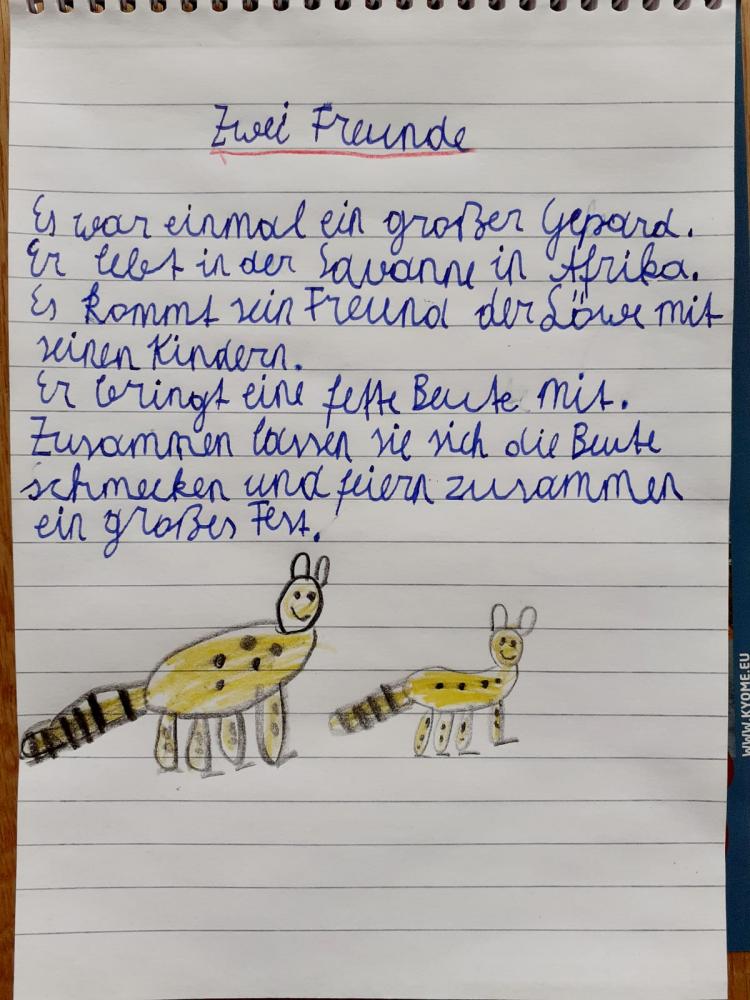 Zwei Freunde
Es war einmal ein großer Gepard.
Er lebt in der Savanne in Afrika.
Es kommt sein Freund der Löwe mit
seinen Kindern.
Er bringt eine fette Beute mit.
Zusammen lassen sie sich die Beute
schmecken und feiern zusammen
ein großes Fest.
WWW.KYOME.EU